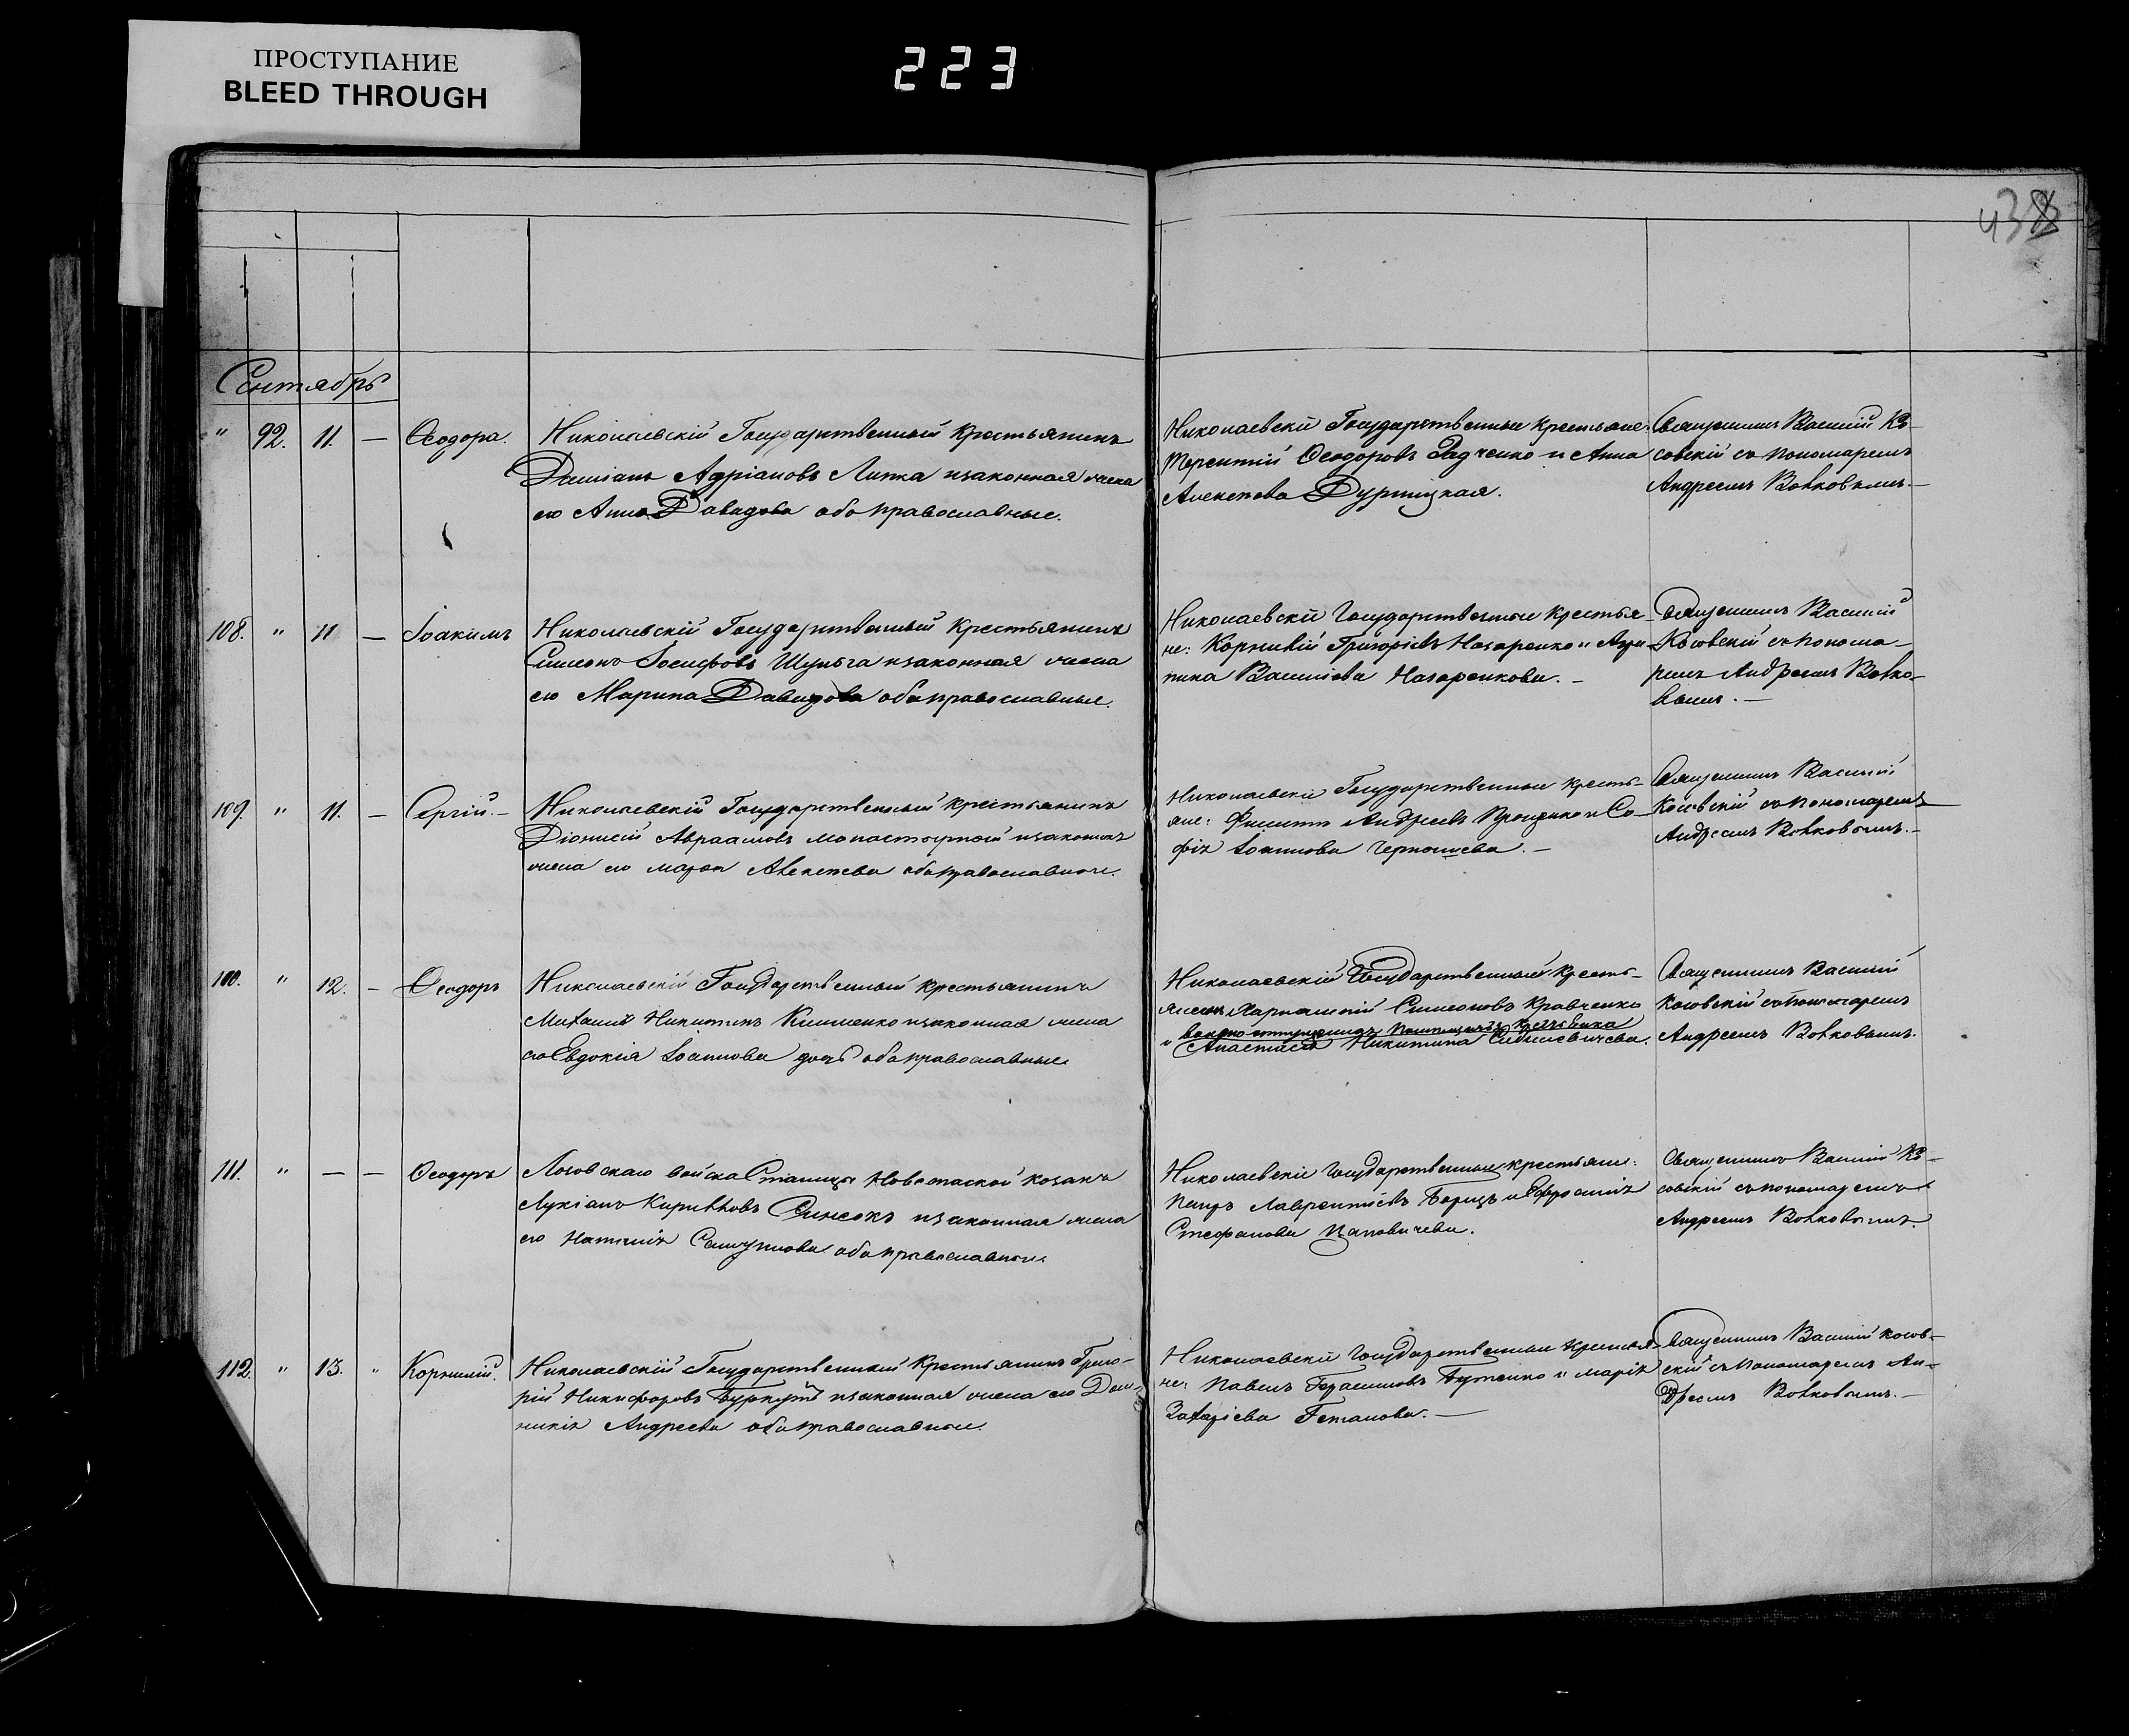 ПРОСТУПАНИЕ
BLEED THROUGH
223
438
Сентябрь
" 92. 11. — Ѳеодора.
Николаевскій Государственный Крестьянинъ
Даміанъ Адріановъ Липка и законная жена
его Анна Давидова оба православные.
Николаевскіе Государственные крестьяне:
Терентій Ѳеодоровъ Радченко и Анна
Алексѣева
Священникъ Василій Ко-
совскій съ пономаремъ
Андреемъ Волковымъ.—
108. " 11 — Іоакимъ
Николаевскій Государственный Крестьянинъ
Симеонъ Іосифовъ Шульга и законная жена
его Марина Давидова оба православные.
Николаевскіе Государственные Крестья-
не: Корнилій Григорьевъ Назаренко и Агри-
пина Василіева Назаренкова.—
Священникъ Василій
Косовскій съ Понома-
ремъ Андреемъ Волко-
вымъ.—
109. " 11. — Сергій.—
Николаевскій Государственный Крестьянинъ
Діонисій Авраамовъ Монастырной и законная
жена его Марѳа Алексѣева оба православные.
Николаевскіе Государственные кресть-
яне: Филиппъ Андреевъ Проценко и Со-
фія Іоаннова
Священникъ Василій
Косовскій съ пономаремъ
Андреемъ Волковымъ.—
" 12. — Ѳеодоръ
Николаевскій Государственный крестьянинъ
Михаилъ Никитинъ Клименко и законная жена
его Евдокія Іоаннова дочь оба православные.
Николаевскій Государственный Кресть-
янинъ Харлампій Симеоновъ Кравченко
и
Анастасія Никитина
Священникъ Василій
Косовскій съ пономаремъ
Андреемъ Волковымъ.
111. " — — Ѳеодоръ
Азовскаго войска Станицы Новоспаской козакъ
Лукіанъ Кирилловъ и законная жена
его Наталія Самуилова оба православные.
Николаевскіе Государственные крестьяне:
Петръ Лаврентіевъ Борецъ и Ефросинія
Стефанова
Священникъ Василій Ко-
совскій съ пономаремъ
Андреемъ Волковымъ.
112. " 13. " Корнилій.
Николаевскій Государственный Крестьянинъ Григо-
рій Никифоровъ Буркутъ и законная жена его Дом-
никія Андреева оба православные.
Николаевскіе Государственные Крестья-
не: Павелъ Герасимовъ Бутенко и Марія
Захаріева Гетманова.—
Священникъ Василій Косов-
скій съ Пономаремъ Ан-
дреемъ Волковымъ.—